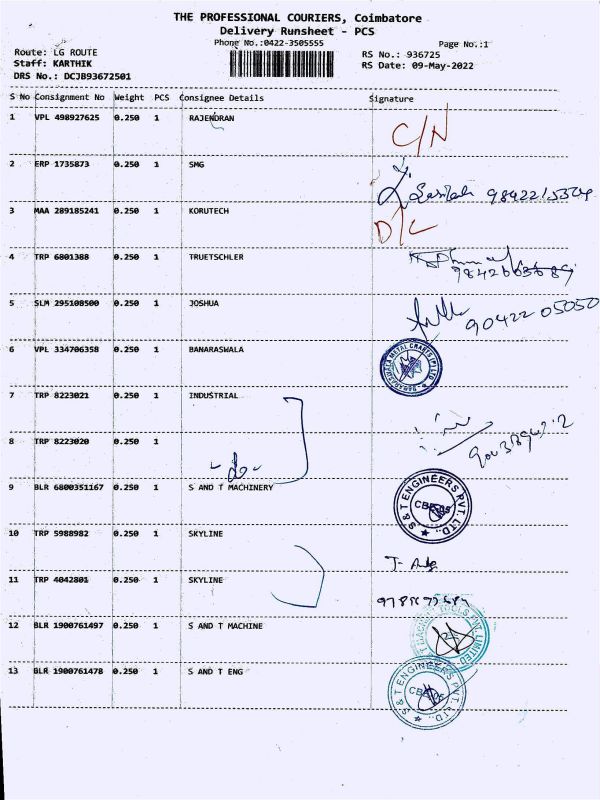 THE PROFESSIONAL COURIERS, Coimbatore
Delivery Runsheet - PCS
Phone No.:0422-3505555
Page No.:1
Route: LG ROUTE
Staff: KARTHIK
DRS No.: DCJB93672501
RS No.: 936725
RS Date: 09-May-2022
S No Consignment No Weight PCS Consignee Details Signature
1 VPL 498927625 0.250 1 RAJENDRAN
C/N
2 ERP 1735873 0.250 1 SMG
3 MAA 289185241 0.250 1 KORUTECH
D/C
4 TRP 6801388 0.250 1 TRUETSCHLER
5 SLM 295108500 0.250 1 JOSHUA
90422 05050
6 VPL 334706358 0.250 1 BANARASWALA
BANARASWALA METAL CRAFTS (P) LTD
7 TRP 8223021 0.250 1 INDUSTRIAL
8 TRP 8223020 0.250 1
-do-
9 BLR 6800351167 0.250 1 S AND T MACHINERY
S & T ENGINEERS PVT. LTD.
10 TRP 5988982 0.250 1 SKYLINE
11 TRP 4042801 0.250 1 SKYLINE
12 BLR 1900761497 0.250 1 S AND T MACHINE
13 BLR 1900761478 0.250 1 S AND T ENG
S & T ENGINEERS PVT. LTD.